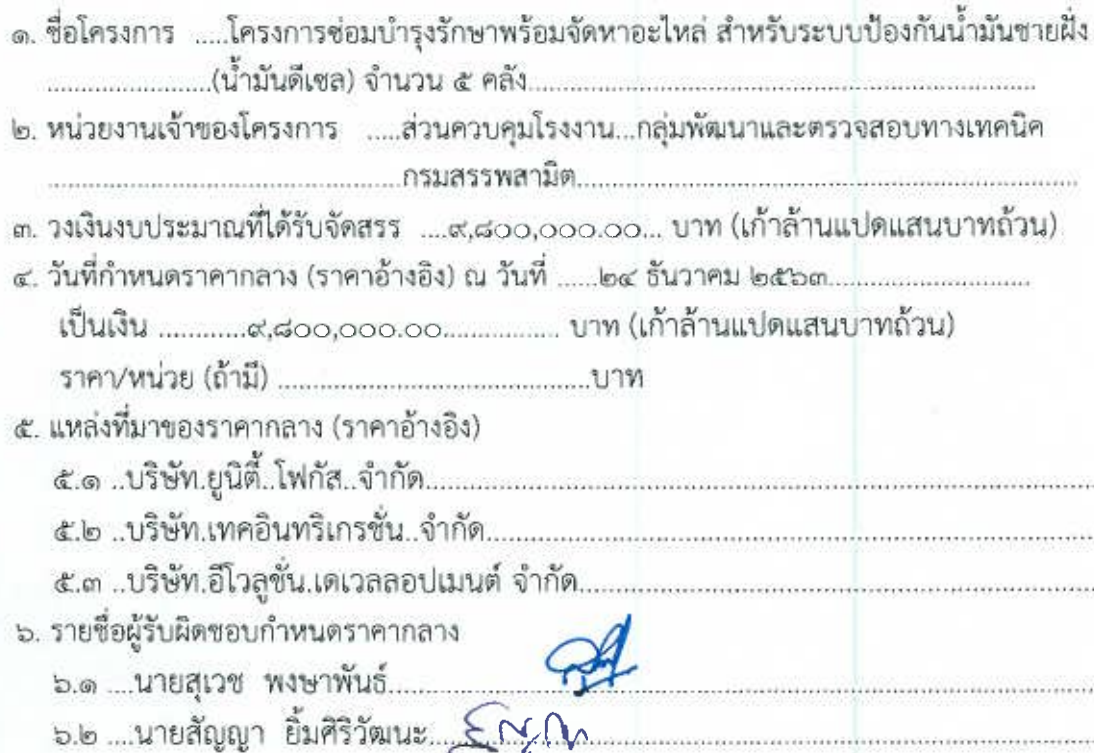 ๑. ชื่อโครงการ .....โครงการซ่อมบำรุงรักษาพร้อมจัดหาอะไหล่ สำหรับระบบป้องกันน้ำมันชายฝั่ง
........................(น้ำมันดีเซล) จำนวน ๕ คลัง..........................................................................
๒. หน่วยงานเจ้าของโครงการ .....ส่วนควบคุมโรงงาน...กลุ่มพัฒนาและตรวจสอบทางเทคนิค
....................................................กรมสรรพสามิต..........................................................................
๓. วงเงินงบประมาณที่ได้รับจัดสรร ....๙,๘๐๐,๐๐๐.๐๐... บาท (เก้าล้านแปดแสนบาทถ้วน)
๔. วันที่กำหนดราคากลาง (ราคาอ้างอิง) ณ วันที่ ......๒๔ ธันวาคม ๒๕๖๓.............................
เป็นเงิน ............๙,๘๐๐,๐๐๐.๐๐................. บาท (เก้าล้านแปดแสนบาทถ้วน)
ราคา/หน่วย (ถ้ามี) ..............................................บาท
๕. แหล่งที่มาของราคากลาง (ราคาอ้างอิง)
๕.๑ ..บริษัท.ยูนิตี้..โฟกัส..จำกัด....................................................................................................
๕.๒ ..บริษัท.เทคอินทริเกรชั่น..จำกัด...........................................................................................
๕.๓ ..บริษัท.อีโวลูชั่น.เดเวลลอปเมนต์ จำกัด.............................................................................
๖. รายชื่อผู้รับผิดชอบกำหนดราคากลาง
๖.๑ ....นายสุเวช พงษาพันธ์..........................................................................................................
๖.๒ ....นายสัญญา ยิ้มศิริวัฒนะ....................................................................................................